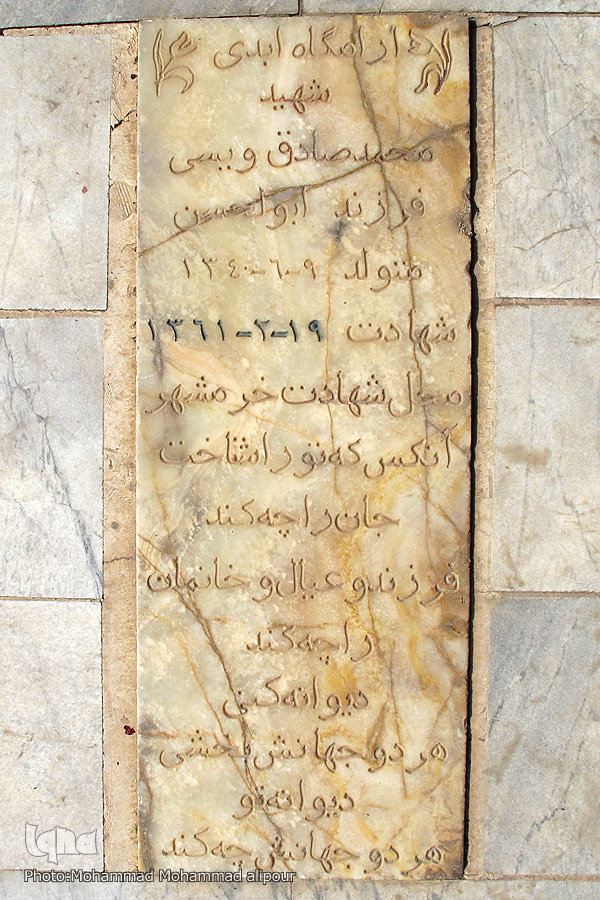 آرامگاه ابدی
شهید
محمد صادق ویسی
فرزند ابوالحسن
متولد ۹-۶-۱۳۴۰
شهادت ۱۹-۲-۱۳۶۱
محل شهادت خرمشهر
آنکس که تو را شناخت
جان را چه کند
فرزند و عیال و خانمان
را چه کند
دیوانه کنی
هر دو جهانش بخشی
دیوانه تو
هر دو جهانش چه کند
iqna
Photo:Mohammad Mohammad alipour